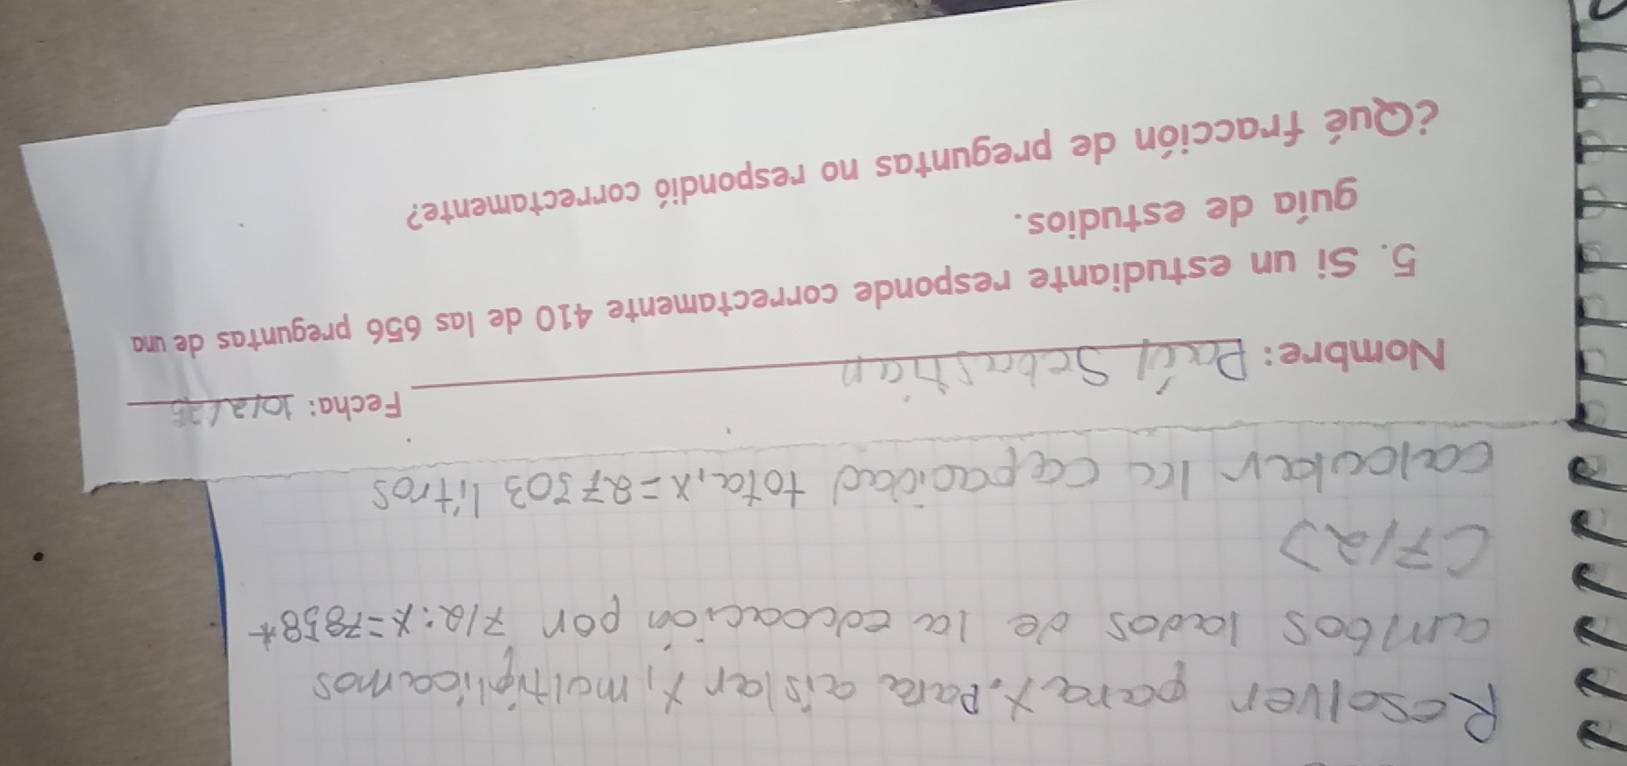 Resolver para x. Para aislar x, multiplicamos
ambos lados de la ecuación por 7/2: x=7858*
(7/2)
calcular la capacidad tota, x=27503 litros
Fecha: 10/2/25
Nombre: Paúl Sebastián
5. Si un estudiante responde correctamente 410 de las 656 preguntas de una
guía de estudios.
¿Qué fracción de preguntas no respondió correctamente?